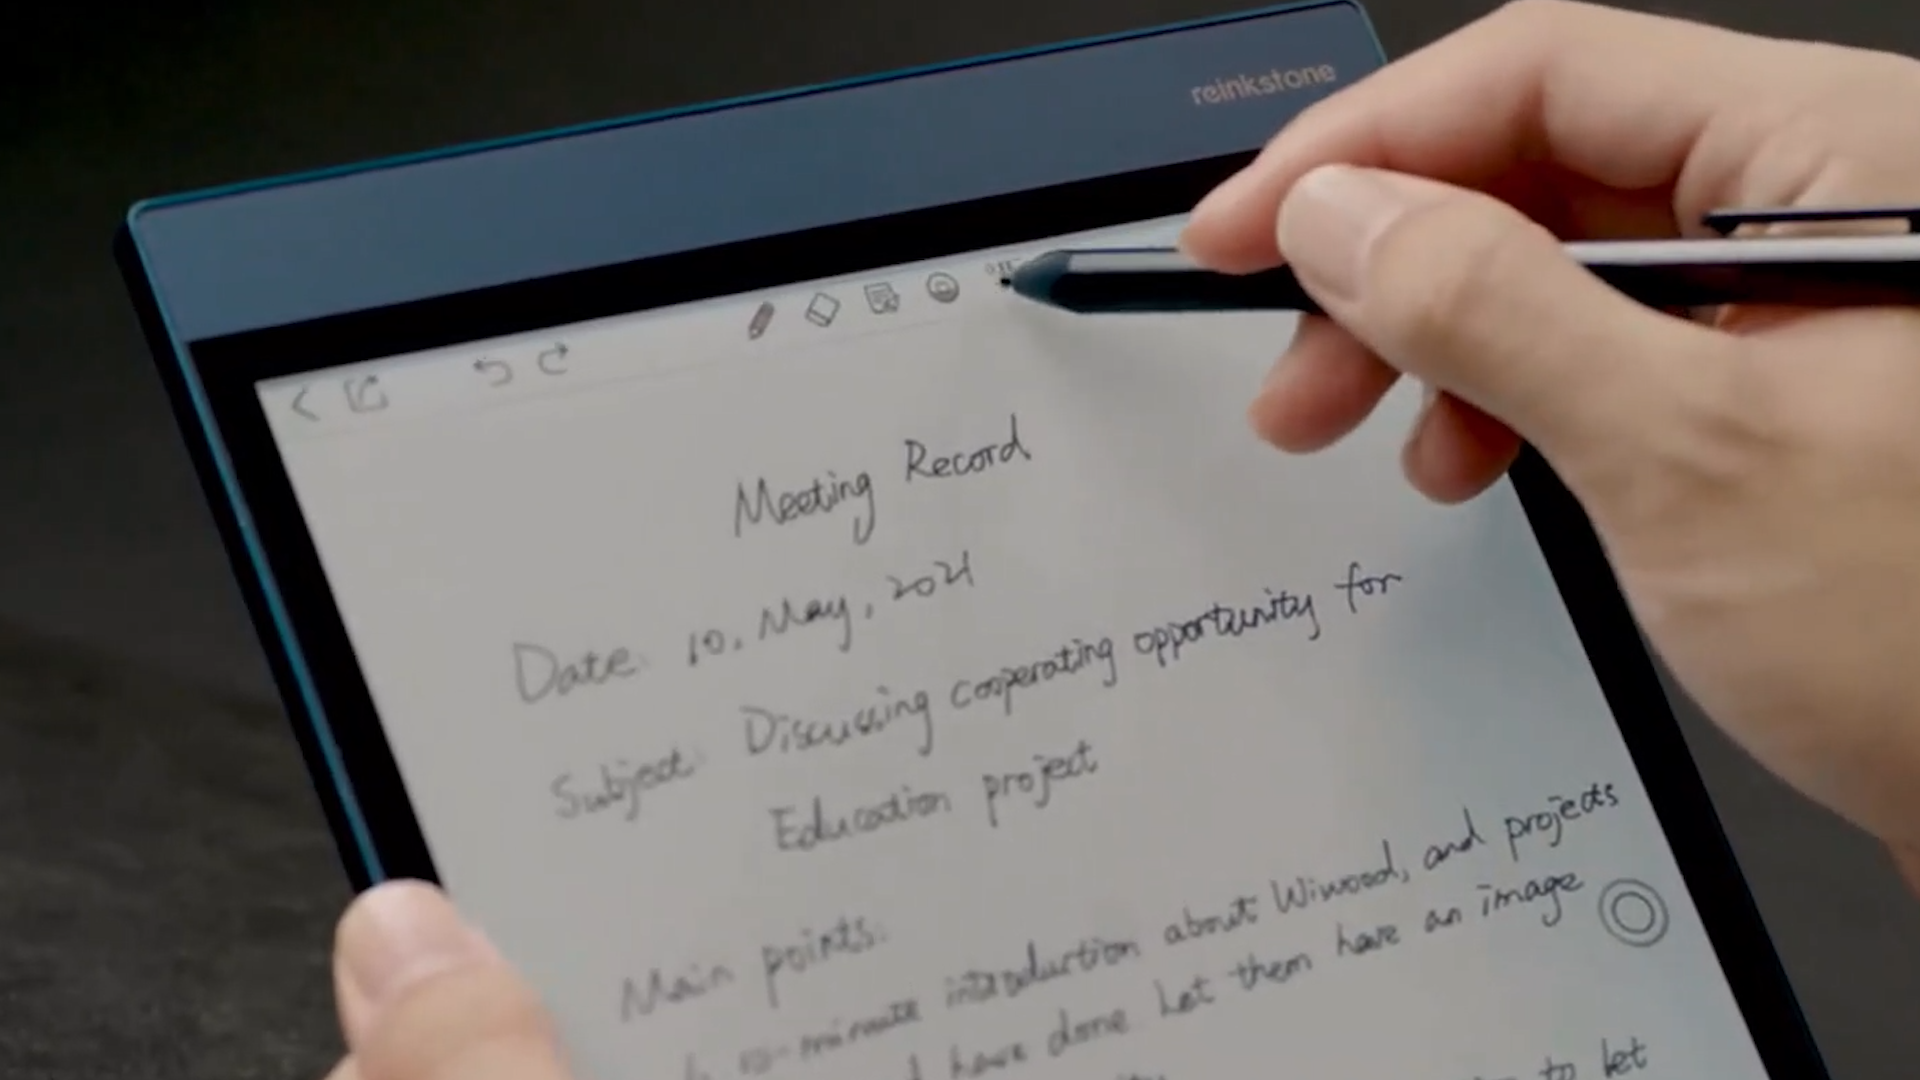 reinkstone
Meeting Record
Date: 10, May, 2021
Subject: Discussing cooperating opportunity for
Education project
Main points:
10-minute introduction about Wiwood, and projects
have done Let them have an image
to let